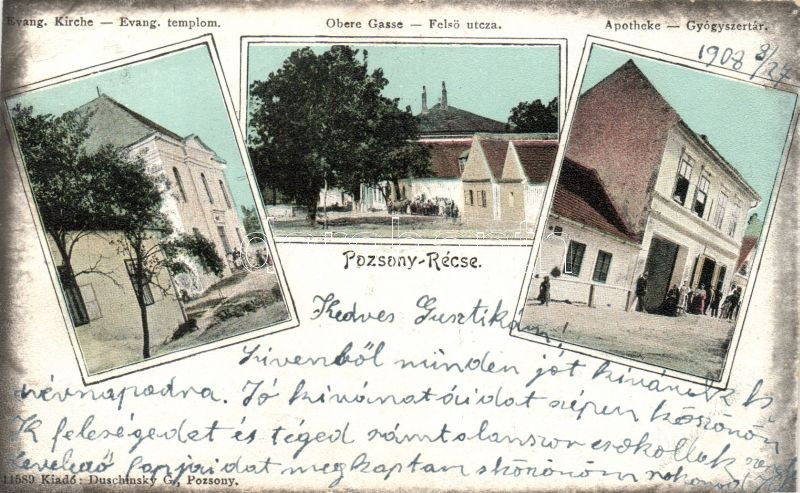 Evang. Kirche — Evang. templom.
Obere Gasse — Felsö utcza.
Apotheke — Gyógyszertár.
1908 8/27
Pozsony-Récse.
Kedves Gusztikám!
Szivemből minden jót kivánok
névnapodra. Jó kivánatáidat szépen köszönöm
feleségedet és téged számtalanszor csokollak
leveledő megkaptam köszönöm
11589 Kiadó: Duschinsky G., Pozsony.